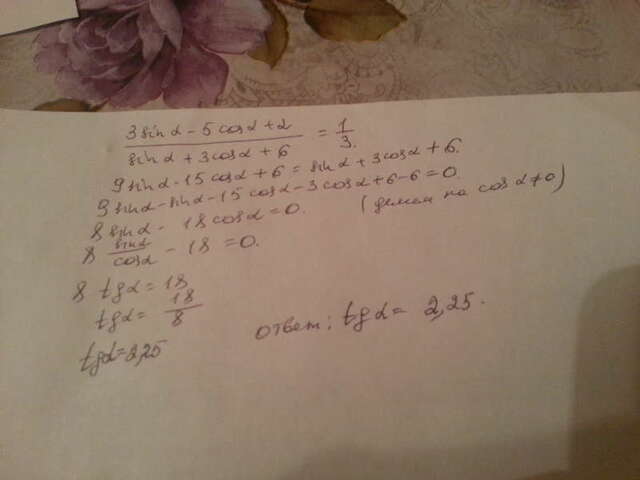 (3 sin α - 5 cos α + 2) / (sin α + 3 cos α + 6) = 1/3.
9 sin α - 15 cos α + 6 = sin α + 3 cos α + 6.
9 sin α - sin α - 15 cos α - 3 cos α + 6 - 6 = 0.
8 sin α - 18 cos α = 0. (делим на cos α ≠ 0)
8 sin α / cos α - 18 = 0.
8 tg α = 18
tg α = 18/8
tg α = 2,25
ответ: tg α = 2,25.